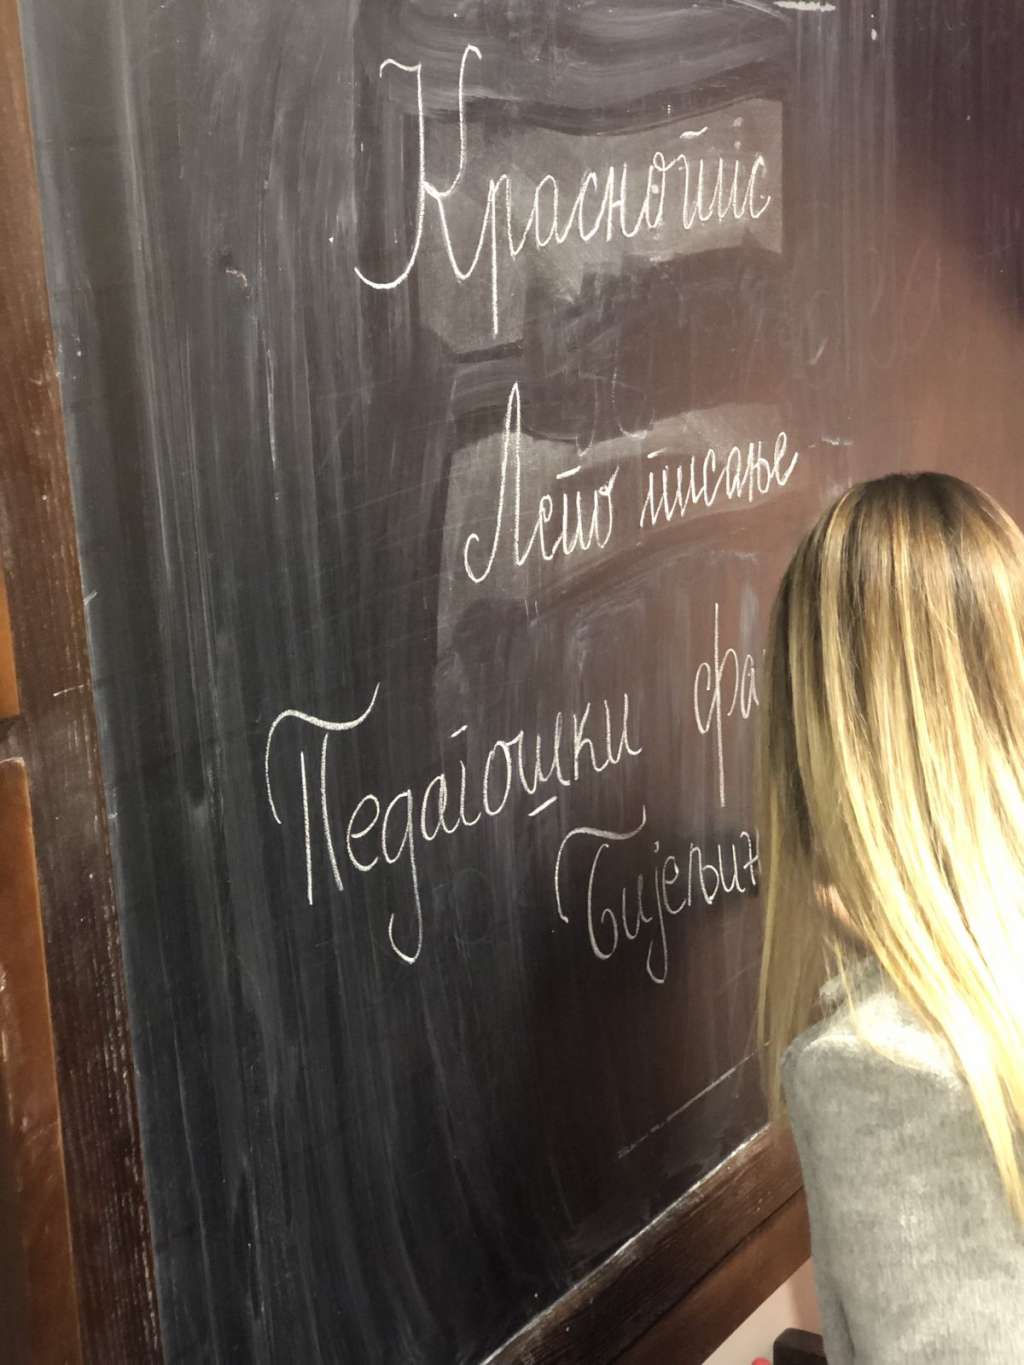 Краснопис
Лепо писање
Педагошки фа
Бијељин